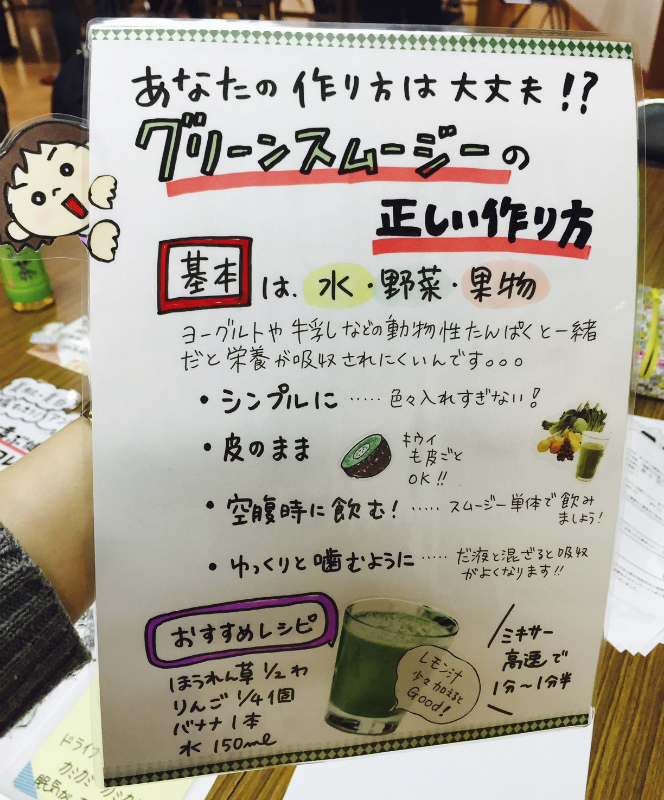 あなたの作り方は大丈夫!?
グリーンスムージーの
正しい作り方
基本は、水・野菜・果物
ヨーグルトや牛乳などの動物性たんぱくと一緒
だと栄養が吸収されにくいんです。。。
・シンプルに ‥‥‥ 色々入れすぎない!
・皮のまま
キウイ
も皮ごと
OK!!
・空腹時に飲む! ‥‥‥ スムージー単体で飲み
ましょう!
・ゆっくりと噛むように ‥‥‥ だ液と混ざると吸収
がよくなります!!
おすすめレシピ
ほうれん草 1/2わ
りんご 1/4個
バナナ 1本
水 150ml
レモン汁
少々加えると
Good!
ミキサー
高速で
1分〜1分半
ドライ
カミカミ
眠気が